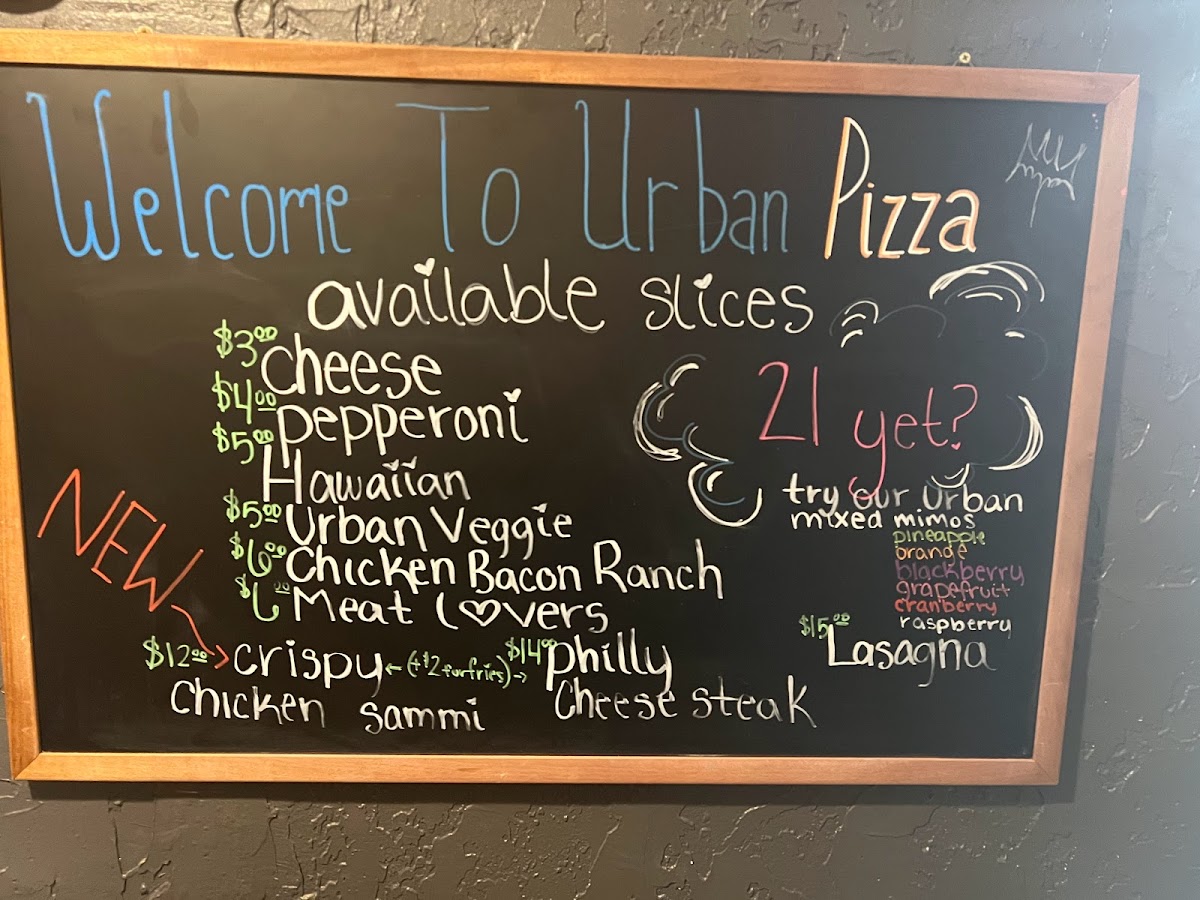 Welcome To Urban Pizza
available slices
$3.00 cheese
$4.00 pepperoni
$5.00 Hawaiian
$5.00 Urban Veggie
$6.00 Chicken Bacon Ranch
$6.00 Meat Lovers
NEW
$12.00 crispy chicken sammi
(+$2 for fries)
$14.00 philly cheese steak
21 yet?
try our Urban
mixed mimos
pineapple
orange
blackberry
grapefruit
cranberry
raspberry
$15.00 Lasagna